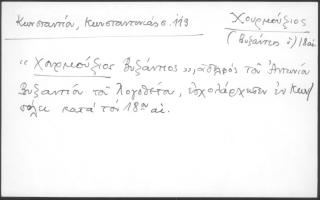 Κωνσταντίου, Κωνσταντινιάς σ. 113
Χουρμούζιος
(Βυζάντιος ὁ) 18 αἰ.
"Χουρμούζιος Βυζάντιος", ἀδελφός τοῦ Ἀντωνίου
Βυζαντίου τοῦ Λογοθέτου, ἐσχολάρχησεν ἐν Κων/
πόλει κατά τόν 18ον αἰ.